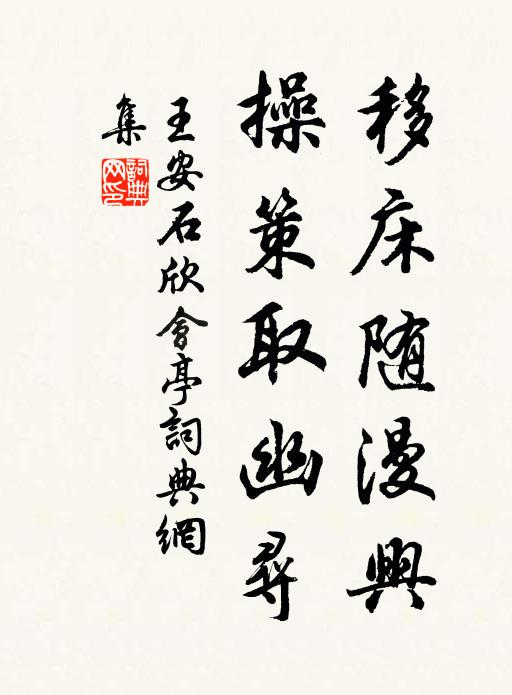 移床随漫興
操策取幽尋
王安石欣會亭詞典網
集
詞典网印